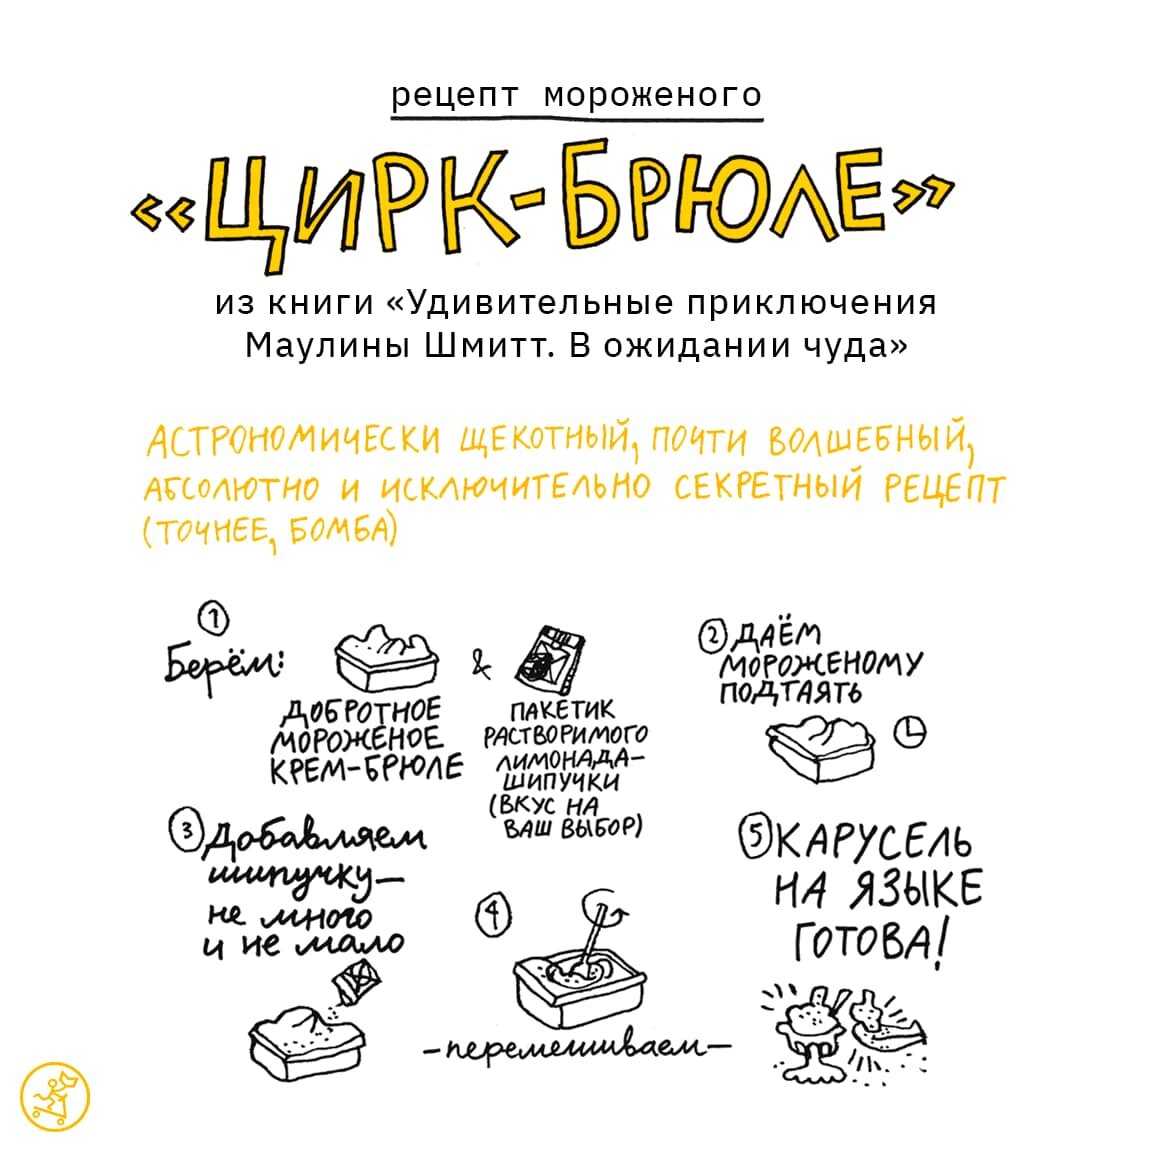 рецепт мороженого
«ЦИРК-БРЮЛЕ»
из книги «Удивительные приключения
Маулины Шмитт. В ожидании чуда»
АСТРОНОМИЧЕСКИ ЩЕКОТНЫЙ, ПОЧТИ ВОЛШЕБНЫЙ,
АБСОЛЮТНО И ИСКЛЮЧИТЕЛЬНО СЕКРЕТНЫЙ РЕЦЕПТ
(ТОЧНЕЕ, БОМБА)
1
Берём:
ДОБРОТНОЕ
МОРОЖЕНОЕ
КРЕМ-БРЮЛЕ
&
ПАКЕТИК
РАСТВОРИМОГО
ЛИМОНАДА-
ШИПУЧКИ
(ВКУС НА
ВАШ ВЫБОР)
2 ДАЁМ
МОРОЖЕНОМУ
ПОДТАЯТЬ
3 Добавляем
шипучку—
не много
и не мало
4
-перемешиваем—
5 КАРУСЕЛЬ
НА ЯЗЫКЕ
ГОТОВА!